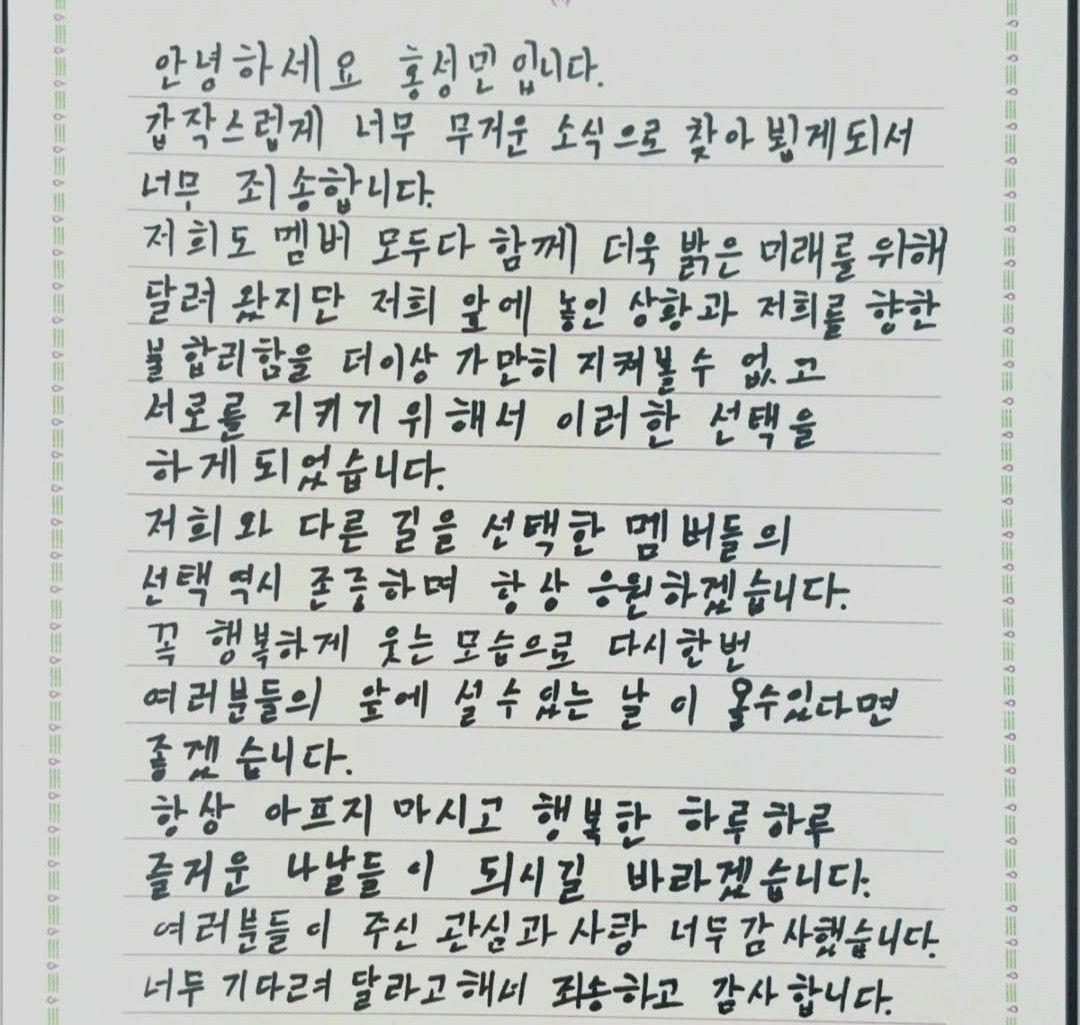 안녕하세요 홍성민입니다.
갑작스럽게 너무 무거운 소식으로 찾아뵙게되서
너무 죄송합니다.
저희도 멤버 모두다 함께 더욱 밝은 미래를 위해
달려 왔지만 저희 앞에 놓인 상황과 저희를 향한
불합리함을 더이상 가만히 지켜볼 수 없고
서로를 지키기 위해서 이러한 선택을
하게 되었습니다.
저희와 다른 길을 선택한 멤버들의
선택 역시 존중하며 항상 응원하겠습니다.
꼭 행복하게 웃는 모습으로 다시한번
여러분들의 앞에 설 수 있는 날이 올수있다면
좋겠습니다.
항상 아프지 마시고 행복한 하루하루
즐거운 나날들이 되시길 바라겠습니다.
여러분들이 주신 관심과 사랑 너무 감사했습니다.
너무 기다려 달라고해서 죄송하고 감사합니다.